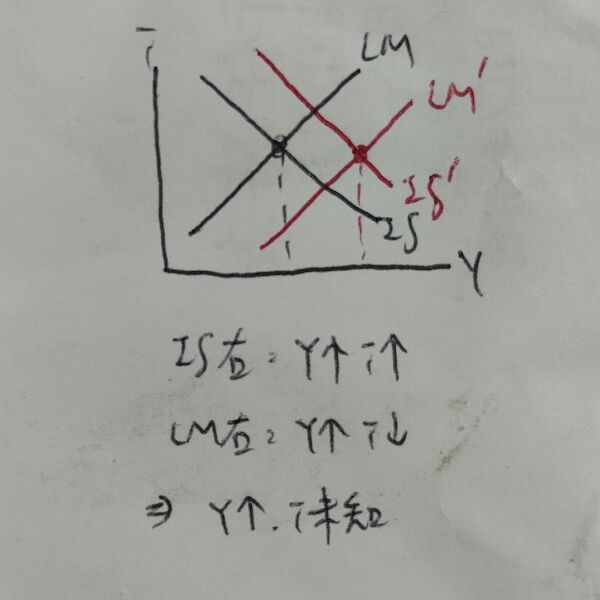 i
LM
LM'
IS'
IS
Y
IS右：Y↑ i↑
LM右：Y↑ i↓
⇒ Y↑. i未知